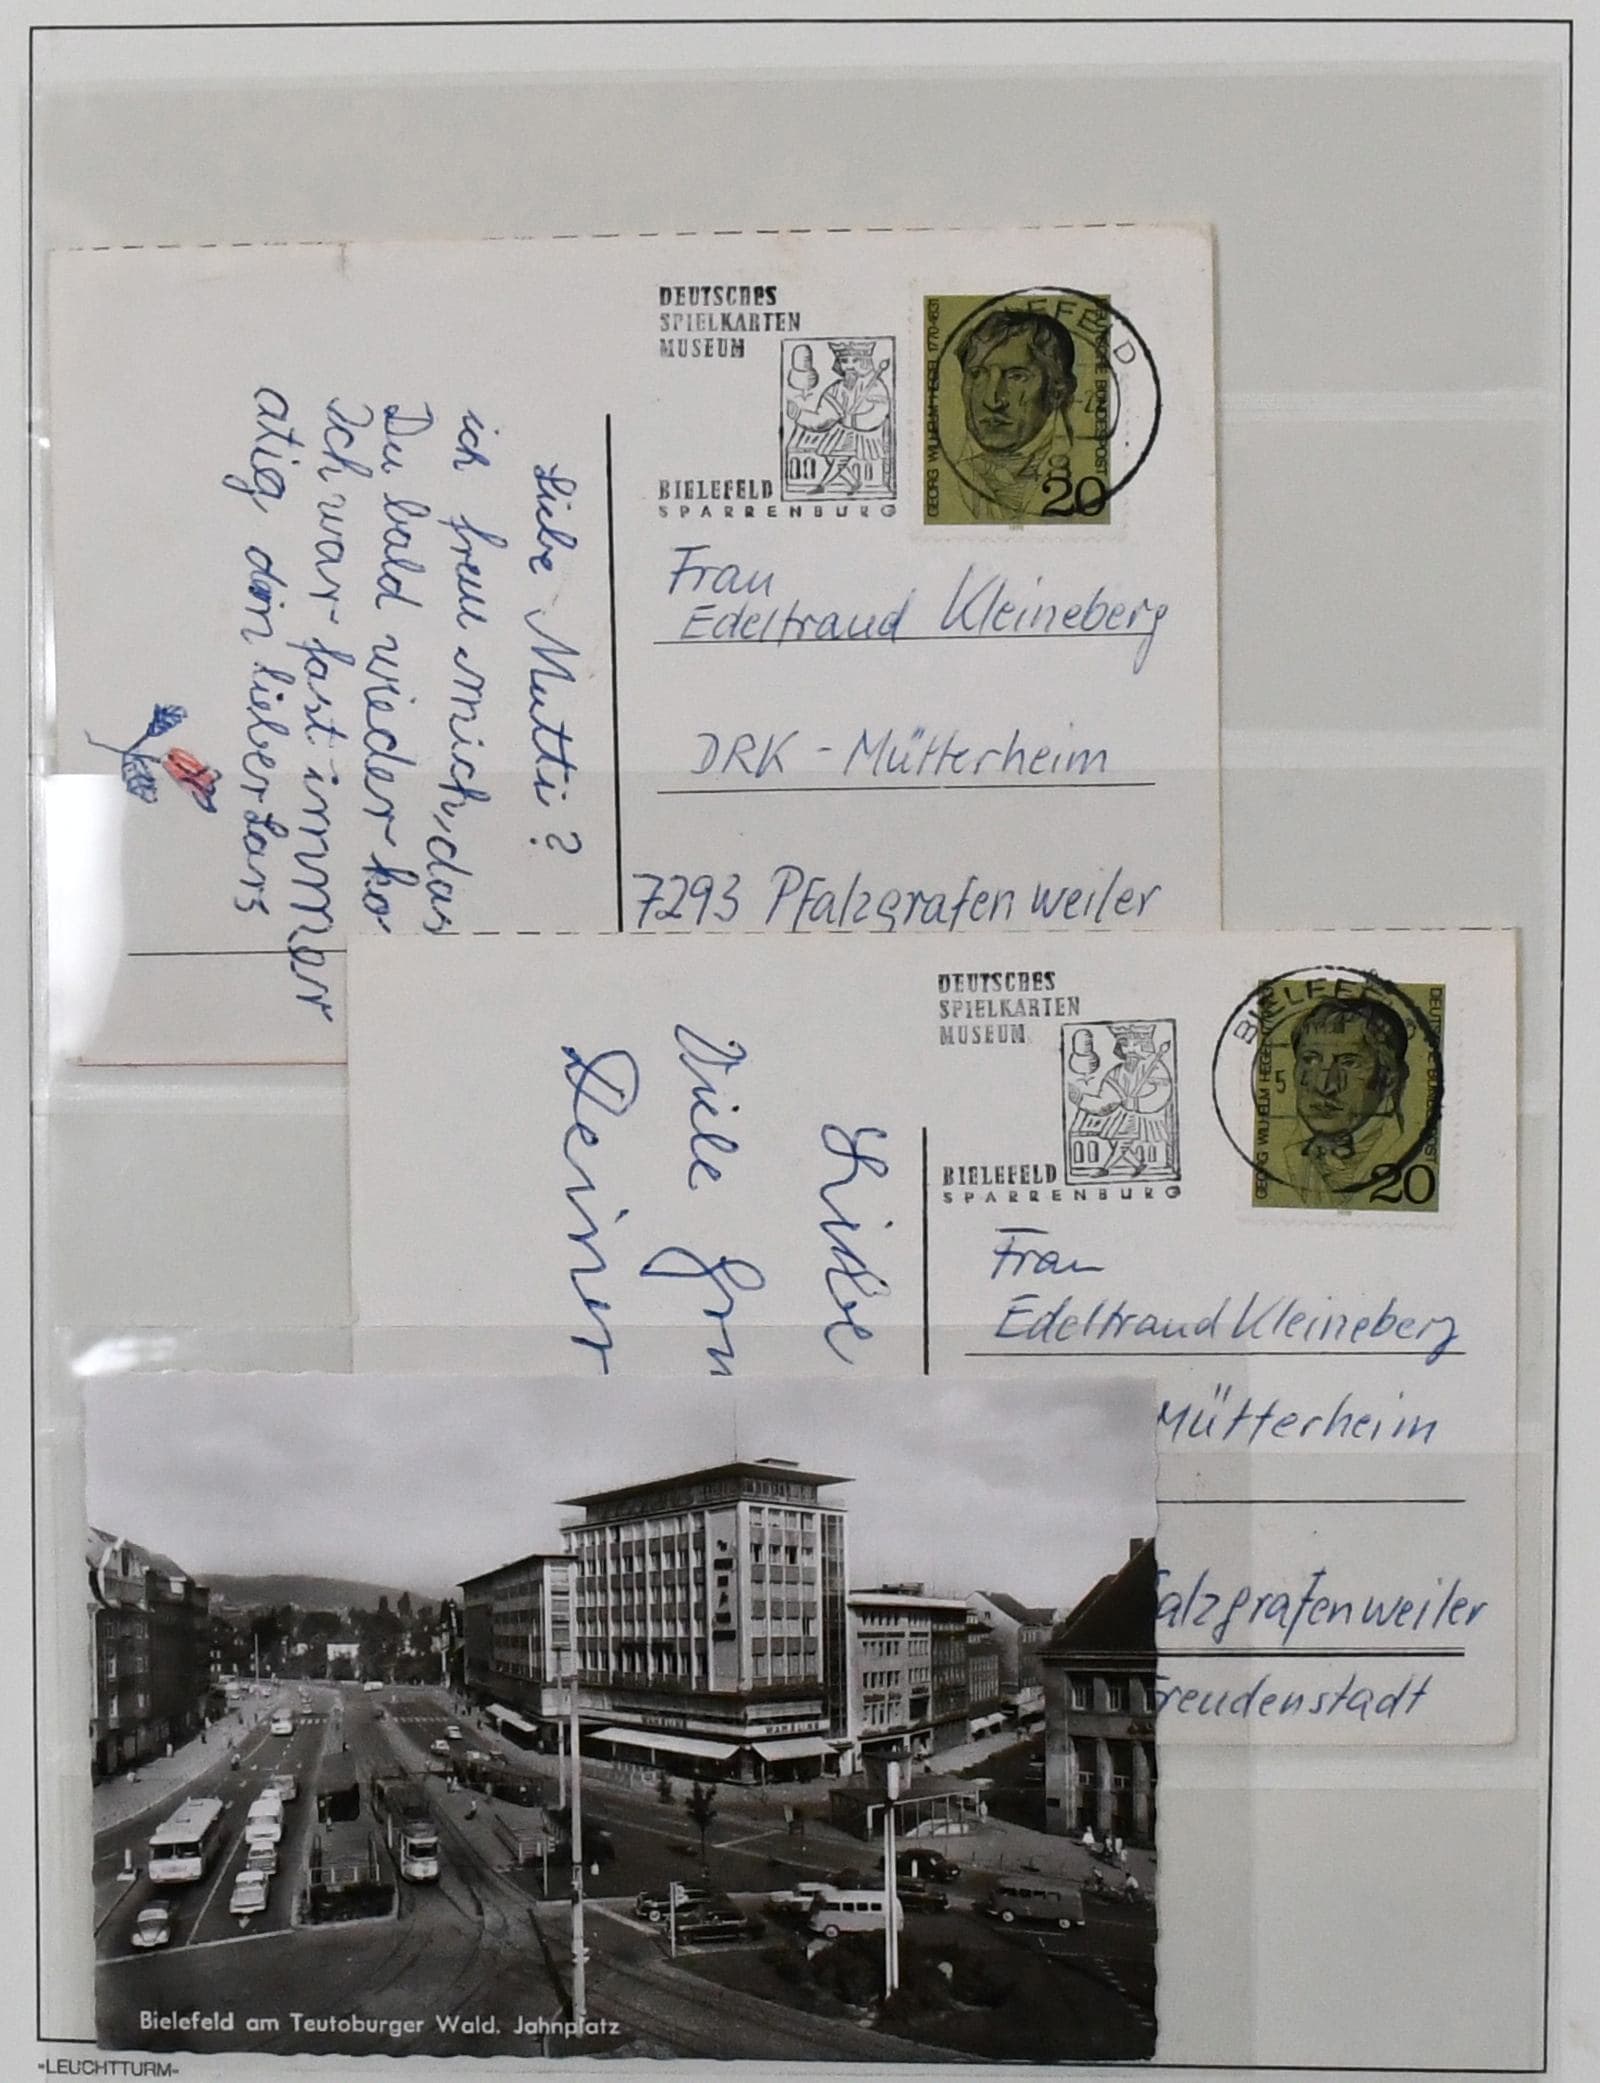 DEUTSCHES
SPIELKARTEN
MUSEUM
BIELEFELD
SPARRENBURG
GEORG WILHELM HEGEL 1770-1831
DEUTSCHE BUNDESPOST
20
Frau
Edeltraud Kleineberg
DRK - Mütterheim
7293 Pfalzgrafenweiler
Liebe Mutti?
ich freu mich, das
Du bald wieder ko
Ich war fast immer
atig, dein lieber Lars
DEUTSCHES
SPIELKARTEN
MUSEUM
BIELEFELD
SPARRENBURG
BIELEFELD
GEORG WILHELM HEGEL
DEUTSCHE BUNDESPOST
20
Frau
Edeltraud Kleineberg
Mütterheim
alzgrafenweiler
Freudenstadt
Liebe
Viele Gru
Deiner
Bielefeld am Teutoburger Wald. Jahnplatz
-LEUCHTTURM-